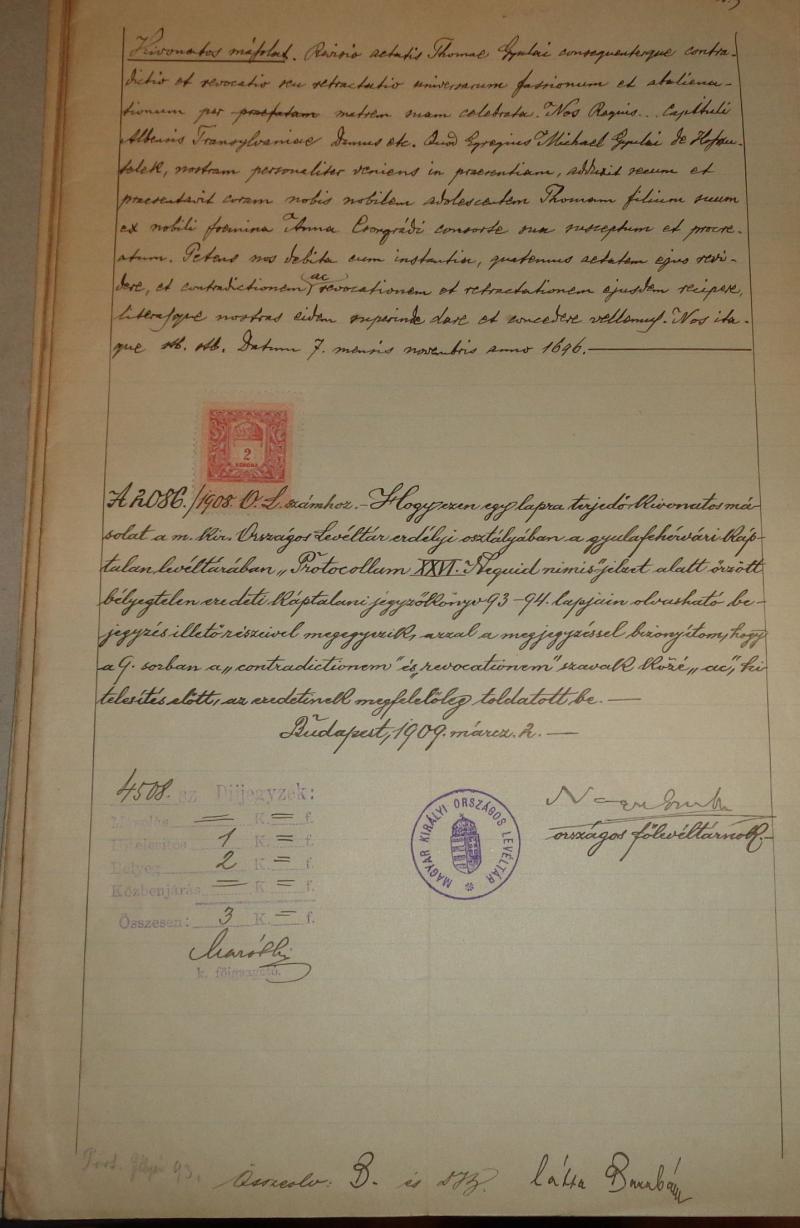 Kivonatos másolat. Revisio aetatis Thomae Gyulai consequenterque contra-
dictio et revocatio seu retractatio universarum fassionum et abaliena-
tionum per praefatam matrem suam celebrata. Nos Requis... Capituli
Albensis Transylvaniae Damus etc. Quod Egregius Michael Gyulai de
telek, nostram personaliter veniens in praesentiam, adduxit secum et
praesentavit coram nobis nobilem adolescentem Thomam filium suum
ex nobili foemina Anna Csongrádi consorte sua susceptum et procre-
atum. Petens nos debita cum instantia, quatenus aetatem ejus revi-
dere, et contradictionem ac revocationem et retractationem ejusdem recipere,
literasque nostras eidem superinde dare et concedere vellemus. Nos ita-
que stb. stb. Datum 7. mensis novembris anno 1696.
2
KORONA
A 2086./1908. O. L. számhoz. - Hogy ezen egy lapra terjedő kivonatos má-
solat a m. kir. Országos Levéltár erdélyi osztályában a gyulafehérvári káp-
talan levéltárában „Protocollum XXVI. Nequid nimis" jelzet alatt őrzött
bélyegtelen eredeti káptalani jegyzőkönyv 93-94. lapjain olvasható be-
jegyzés illető részeivel megegyezik, azzal a megjegyzéssel bizonyítom, hogy
a 9. sorban a „contradictionem" és „revocationem" szavak közé „ac", hi-
telesítés előtt, az eredetinek megfelelőleg toldatott be. —
Budapest, 1909. márcz. 2. —
4508. sz Díjjegyzek:
Másolás — K. = f.
Hitelesítés 1 K. = f.
Bélyeg 2 K. = f.
Közbenjárás — K. = f.
Összesen: 3 K. = f.
k. főigazgató.
MAGYAR KIRÁLYI ORSZÁGOS LEVÉLTÁR
országos főlevéltárnok.
93.
Összeolv: B. és
látta Barabás